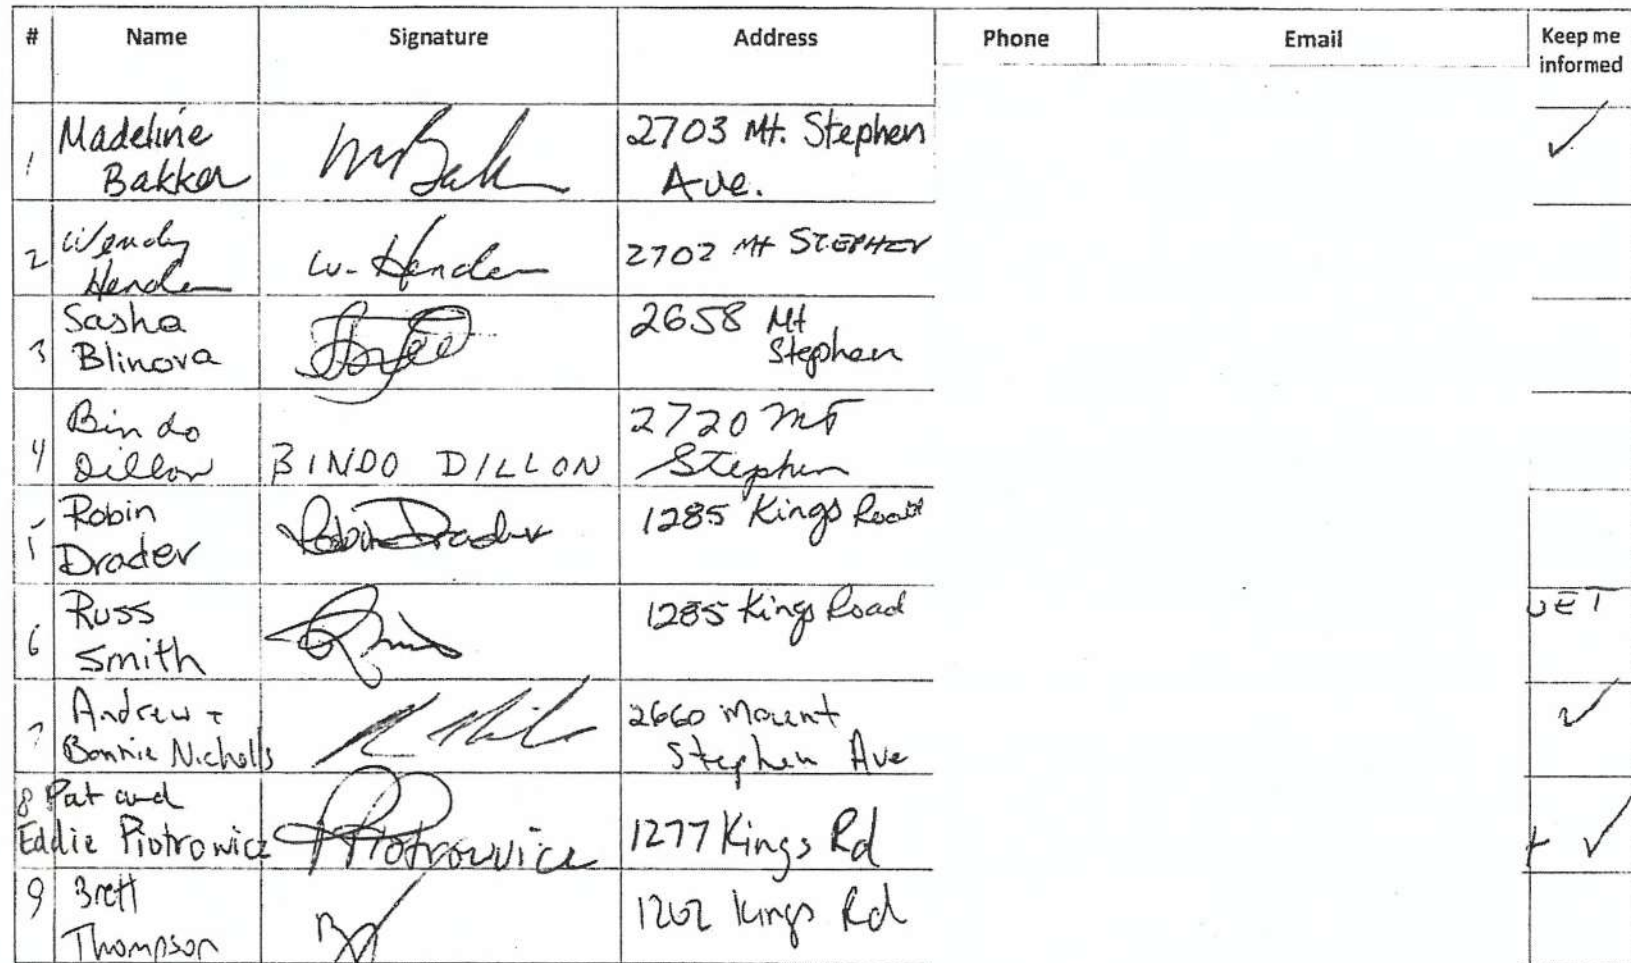 # Name Signature Address Phone Email Keep me informed
1 Madeline Bakker 2703 Mt. Stephen Ave. ✓
2 Wendy 2702 Mt STEPHEN
W. 
3 Sasha Blinova 2658 Mt Stephen
4 Bindo Dillon BINDO DILLON 2720 Mt Stephen
5 Robin Drader Robin Drader 1285 Kings Road
6 Russ Smith 1285 Kings Road
7 Andrew + Bonnie Nicholls 2660 Mount Stephen Ave ✓
8 Pat and Eddie Piotrowicz Piotrowicz 1277 Kings Rd ✓
9 Brett Thompson Kings Rd